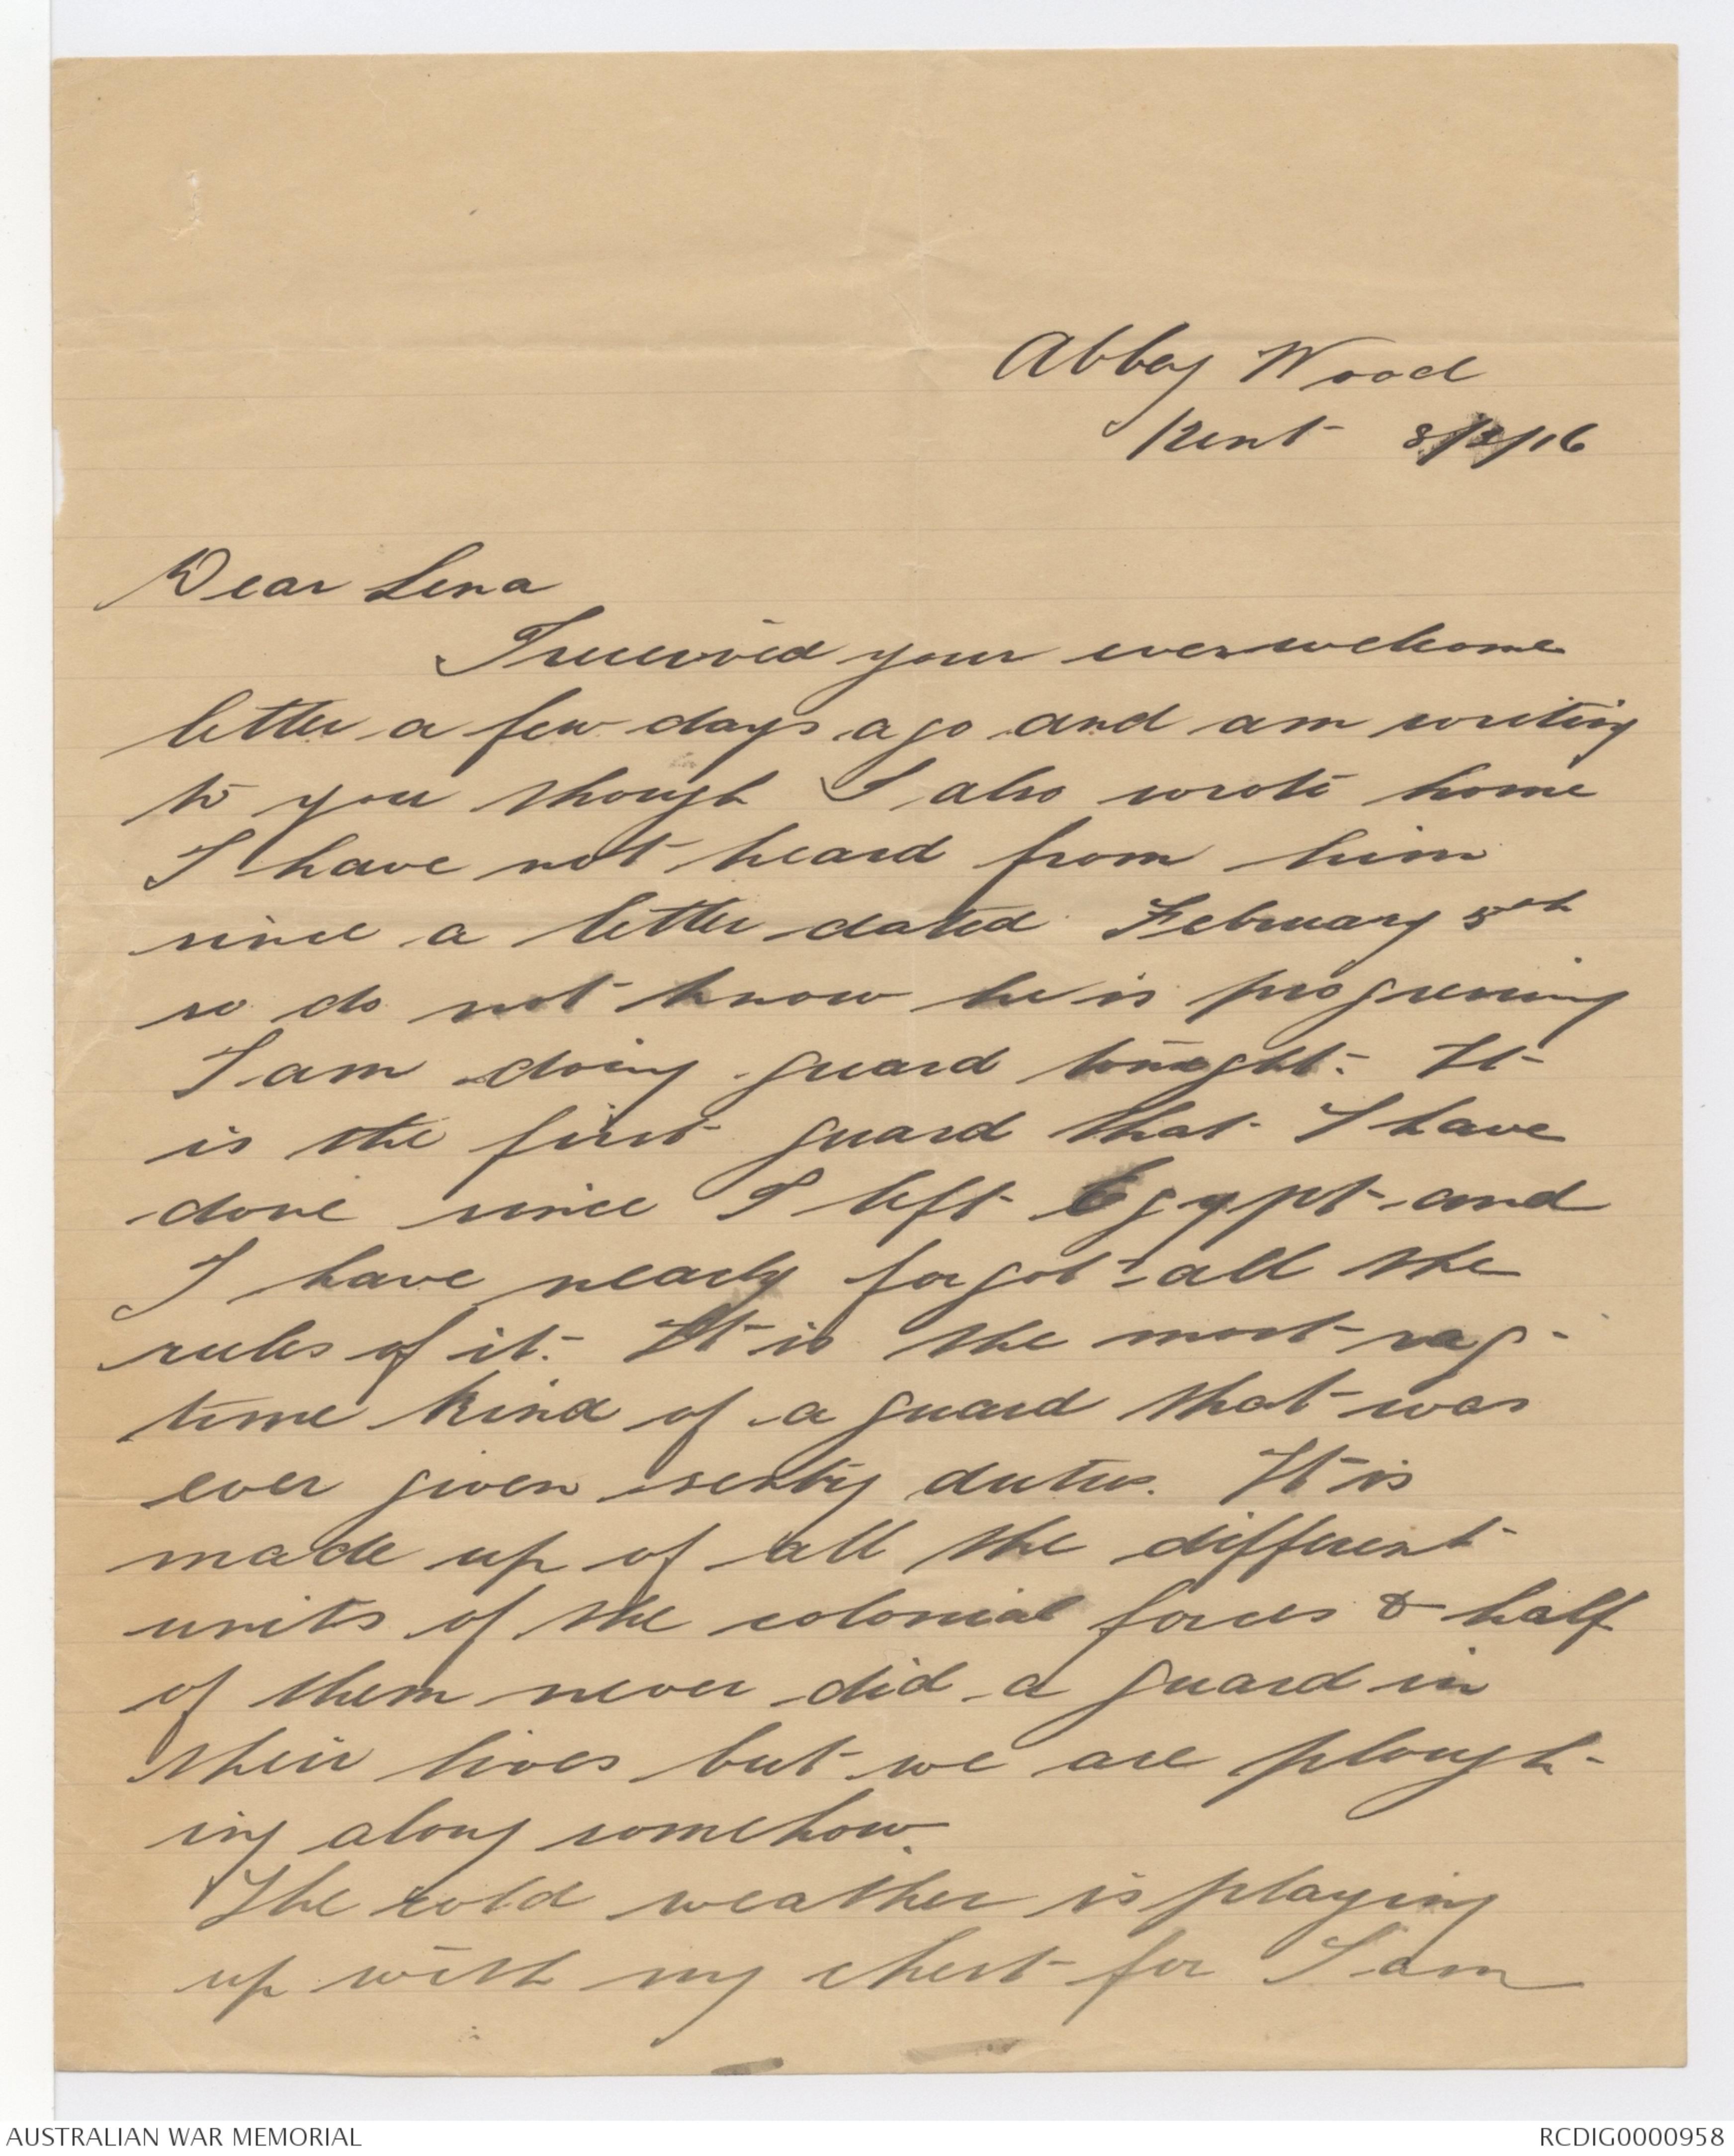 Abbey Wood
Kent 8/2/16
Dear Lena
I received your ever welcome
letter a few days ago and am writing
to you though I also wrote home
I have not heard from him
since a letter dated February 5th
so do not know he is progressing
I am doing guard tonight. It
is the first guard that I have
done since I left Egypt and
I have nearly forgot all the
rules of it. It is the most rag-
time kind of a guard that was
ever given sentry duties. It is
made up of all the different
units of the colonial forces & half
of them never did a guard in
their lives but we are plough-
ing along somehow.
The cold weather is playing
up with my chest for I am
AUSTRALIAN WAR MEMORIAL
RCDIG0000958